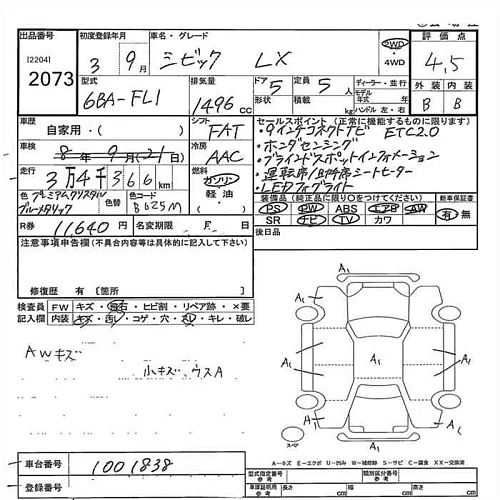 出品番号 初度登録年月 車名・グレード 評価点
[2204] 3 9月 シビック LX 2WD ・ 4WD 4,5
2073
型式 排気量 ドア 5 定員 5人 ディーラー・並行
形状 積載 kg モデル年式 年 ハンドル 左・右 外装 内装
6BA-FL1 1496cc B B
車歴 シフト セールスポイント (正常に機能するものに限ります)
自家用・( ) FAT ・9インチコネクトナビ ETC2.0
車検 8年 9月 21日 冷房 ・ホンダセンシング
AAC ・ブラインドスポットインフォメーション
走行 3万4千366km 燃料 ・運転席/助手席シートヒーター
ガソリン ・LEDフォグライト
軽油・( )
色 プレミアムクリスタルブルーメタリック 色替 色コード B625M
装備品 (純正品に限り○をつけてください) 新車保証書
PS PW ABS エアB AW 有・無
SR ナビ TV カワ
R券 11,640円 名変期限 月 日 後日品
注意事項申告欄 (不具合内容等は具体的に記入して下さい)
修復歴 有 [箇所 ]
検査員 FW キズ・飛石・ヒビ割・リペア跡・×要
記入欄 内装 キズ・汚レ・コゲ・穴・スレ・キレ・破レ
AWキズ
小キズ、ウスA
A1
A1 A1
A1 A1 A1
A1 A1
A1
スペア
A-キズ E-エクボ U-凹み W-補修跡 S-サビ C-腐食 XX-交換済
車台番号 1001838
登録番号
型式指定番号 類別区分番号
車庫証明用 長さ cm 幅 cm 高さ cm